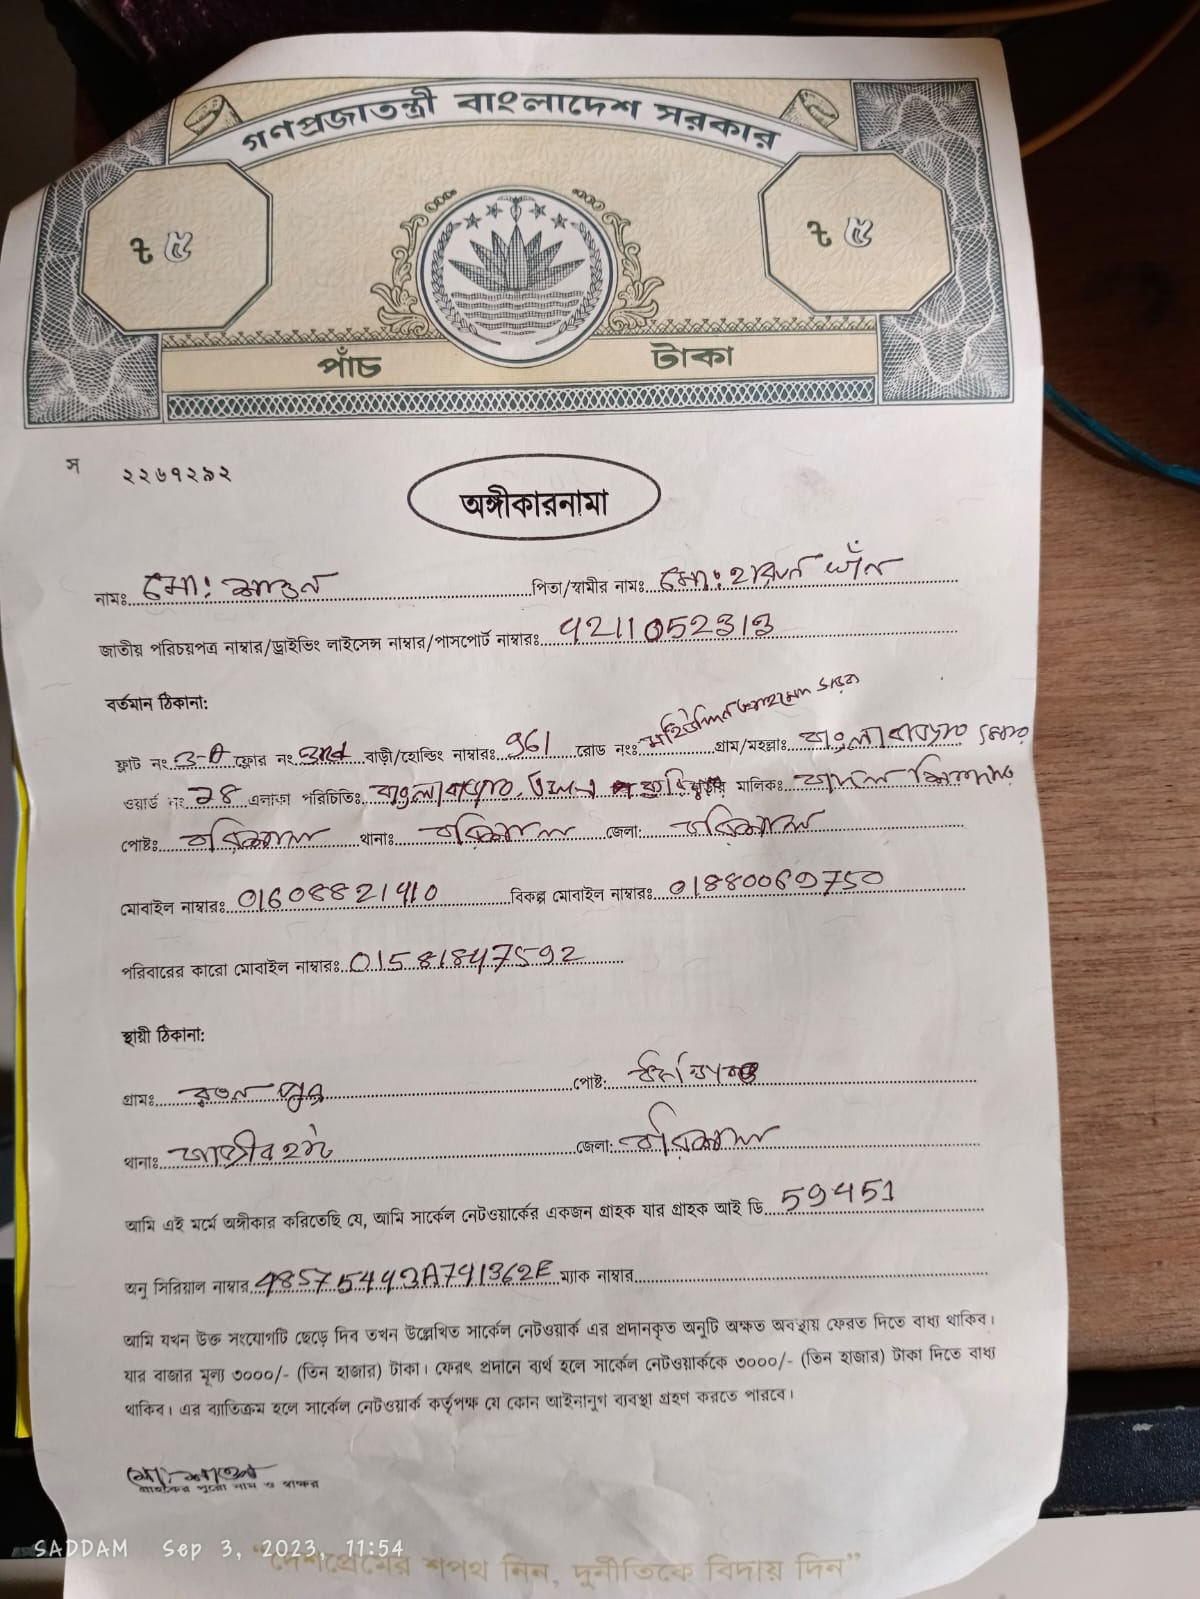 গণপ্রজাতন্ত্রী বাংলাদেশ সরকার
৳ ৫ ৳ ৫
পাঁচ টাকা
স ২২৬৭২৯২
অঙ্গীকারনামা
নামঃ মো: পিতা/স্বামীর নামঃ মো: হারুন খাঁন
জাতীয় পরিচয়পত্র নাম্বার/ড্রাইভিং লাইসেন্স নাম্বার/পাসপোর্ট নাম্বারঃ 4211052313
বর্তমান ঠিকানা:
ফ্লাট নং 3-A ফ্লোর নং 3rd বাড়ী/হোল্ডিং নাম্বারঃ 961 রোড নংঃ গ্রাম/মহল্লাঃ
ওয়ার্ড নং 28 এলাকা পরিচিতিঃ মালিকঃ
পোষ্টঃ বরিশাল থানাঃ বরিশাল জেলা: বরিশাল
মোবাইল নাম্বারঃ 01608821410 বিকল্প মোবাইল নাম্বারঃ 01880069750
পরিবারের কারো মোবাইল নাম্বারঃ 01581847592
স্থায়ী ঠিকানা:
গ্রামঃ পোষ্ট:
থানাঃ জেলা: বরিশাল
আমি এই মর্মে অঙ্গীকার করিতেছি যে, আমি সার্কেল নেটওয়ার্কের একজন গ্রাহক যার গ্রাহক আই ডি 59451
অনু সিরিয়াল নাম্বার 485754439A741362E ম্যাক নাম্বার
আমি যখন উক্ত সংযোগটি ছেড়ে দিব তখন উল্লেখিত সার্কেল নেটওয়ার্ক এর প্রদানকৃত অনুটি অক্ষত অবস্থায় ফেরত দিতে বাধ্য থাকিব।
যার বাজার মূল্য ৩০০০/- (তিন হাজার) টাকা। ফেরৎ প্রদানে ব্যর্থ হলে সার্কেল নেটওয়ার্ককে ৩০০০/- (তিন হাজার) টাকা দিতে বাধ্য
থাকিব। এর ব্যতিক্রম হলে সার্কেল নেটওয়ার্ক কর্তৃপক্ষ যে কোন আইনানুগ ব্যবস্থা গ্রহণ করতে পারবে।
গ্রাহকের পুরো নাম ও স্বাক্ষর
SADDAM Sep 3, 2023, 11:54
“দেশপ্রেমের শপথ নিন, দুর্নীতিকে বিদায় দিন”